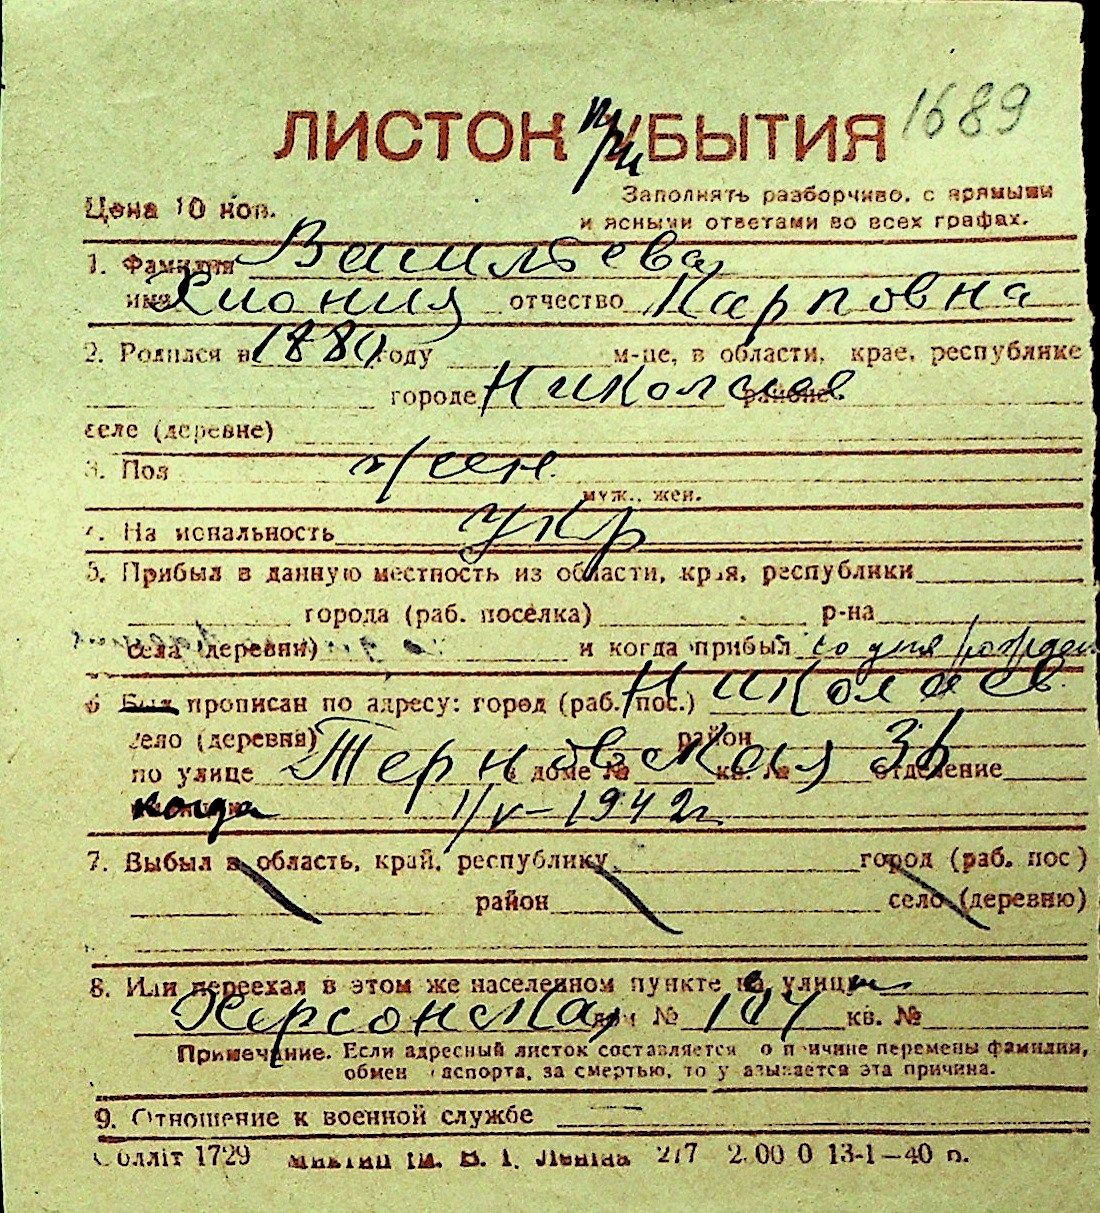 1689
ЛИСТОН прибытия
Цена 10 коп.
Заполнять разборчиво, с прямыми
и ясными ответами во всех графах.
1. Фамилия Васильева
имя Хиония отчество Карповна
2. Родился в 1880 году м-це, в области, крае, республике
городе Николаев районе
селе (деревне)
3. Пол жен.
муж., жен.
4. На иональность укр
5. Прибыл в данную местность из области, края, республики
города (раб. поселка) р-на
села (деревни) и когда прибыл со дня рожден
6 Был прописан по адресу: город (раб. пос.) Николаев
село (деревня) район
по улице Терновская 36 в доме № кв. № отделение
когда 1/V-1942г
7. Выбыл в область, край, республику город (раб. пос)
район село (деревню)
8. Или переехал в этом же населенном пункте на улицу
Херсонская дом № 107 кв. №
Примечание. Если адресный листок составляется о п ичине перемены фамилии,
обмен аспорта, за смертью, то у азывается эта причина.
9. Отношение к военной службе —
Облліт 1729 ім. В. І. Леніна 217 2.00 0 13-1—40 р.